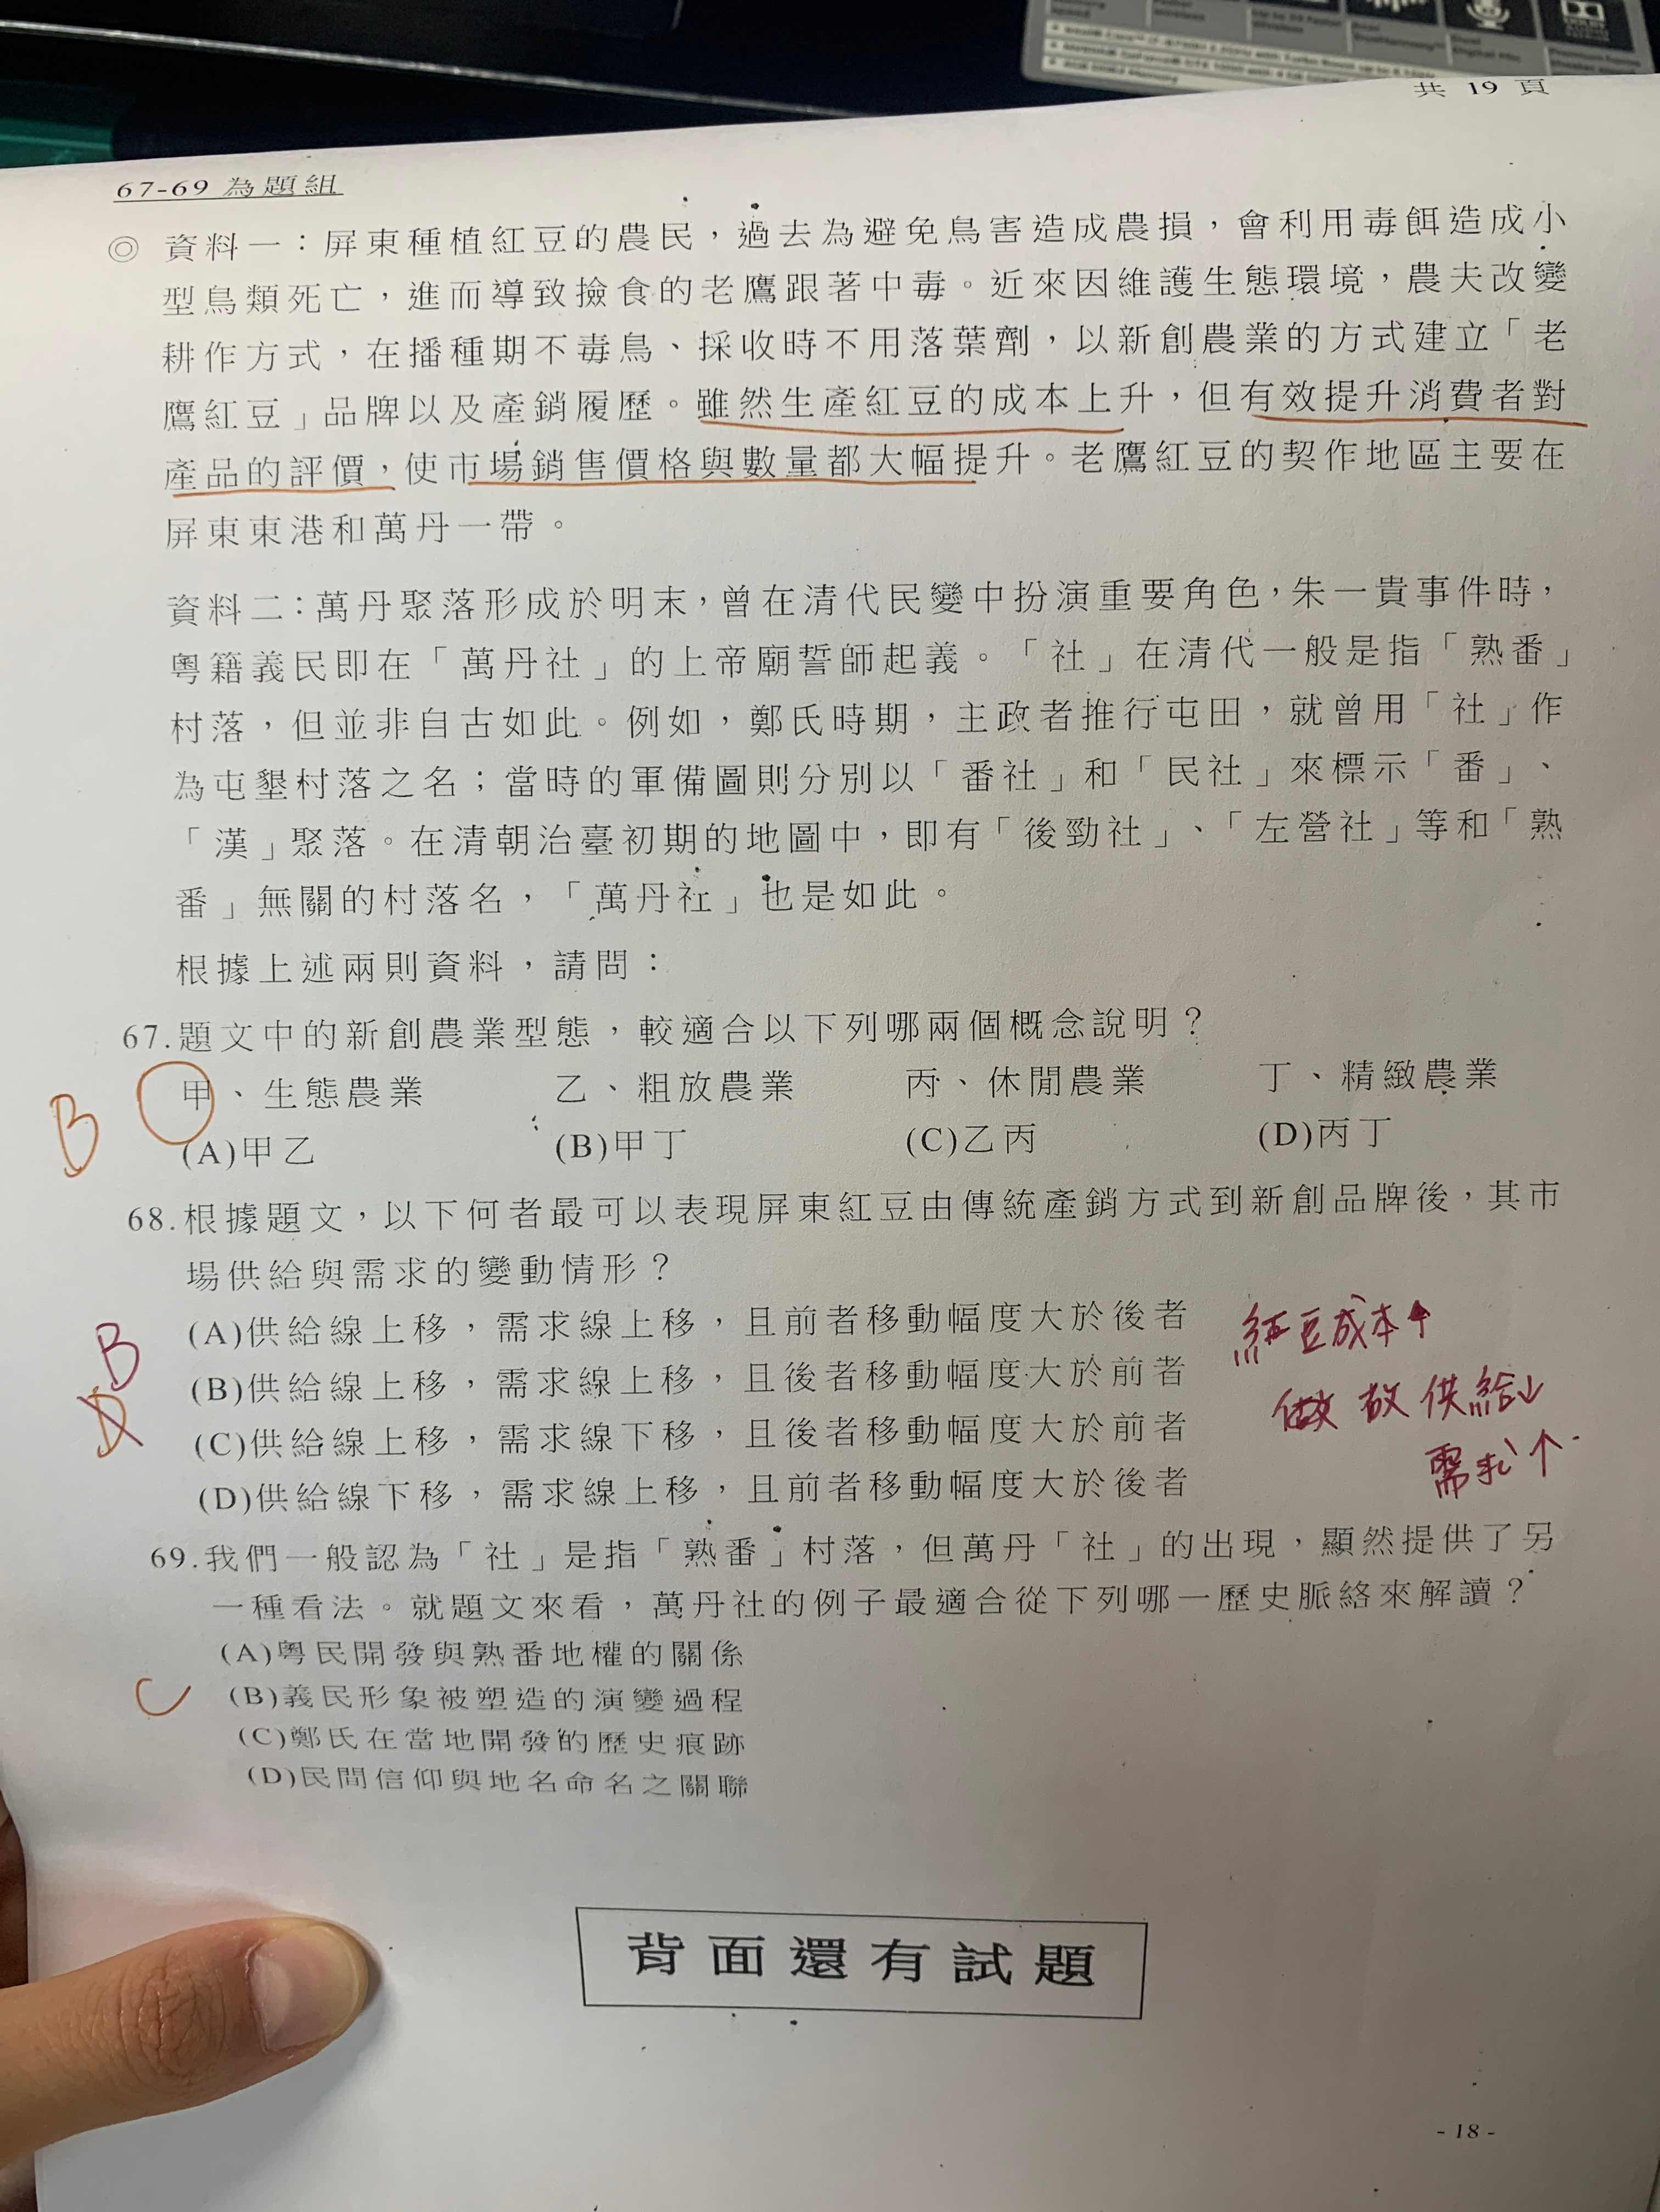 共 19 頁
67-69 為題組
◎ 資料一：屏東種植紅豆的農民，過去為避免鳥害造成農損，會利用毒餌造成小
型鳥類死亡，進而導致撿食的老鷹跟著中毒。近來因維護生態環境，農夫改變
耕作方式，在播種期不毒鳥、採收時不用落葉劑，以新創農業的方式建立「老
鷹紅豆」品牌以及產銷履歷。雖然生產紅豆的成本上升，但有效提升消費者對
產品的評價，使市場銷售價格與數量都大幅提升。老鷹紅豆的契作地區主要在
屏東東港和萬丹一帶。
資料二：萬丹聚落形成於明末，曾在清代民變中扮演重要角色，朱一貴事件時，
粵籍義民即在「萬丹社」的上帝廟誓師起義。「社」在清代一般是指「熟番」
村落，但並非自古如此。例如，鄭氏時期，主政者推行屯田，就曾用「社」作
為屯墾村落之名；當時的軍備圖則分別以「番社」和「民社」來標示「番」、
「漢」聚落。在清朝治臺初期的地圖中，即有「後勁社」、「左營社」等和「熟
番」無關的村落名，「萬丹社」也是如此。
根據上述兩則資料，請問：
67.題文中的新創農業型態，較適合以下列哪兩個概念說明？
甲、生態農業 乙、粗放農業 丙、休閒農業 丁、精緻農業
B
(A)甲乙 (B)甲丁 (C)乙丙 (D)丙丁
68.根據題文，以下何者最可以表現屏東紅豆由傳統產銷方式到新創品牌後，其市
場供給與需求的變動情形？
(A)供給線上移，需求線上移，且前者移動幅度大於後者 紅豆成本↑
B (B)供給線上移，需求線上移，且後者移動幅度大於前者
D (C)供給線上移，需求線下移，且後者移動幅度大於前者 故供給↓
(D)供給線下移，需求線上移，且前者移動幅度大於後者 需求↑
69.我們一般認為「社」是指「熟番」村落，但萬丹「社」的出現，顯然提供了另
一種看法。就題文來看，萬丹社的例子最適合從下列哪一歷史脈絡來解讀？
(A)粵民開發與熟番地權的關係
C (B)義民形象被塑造的演變過程
(C)鄭氏在當地開發的歷史痕跡
(D)民間信仰與地名命名之關聯
背面還有試題
- 18 -